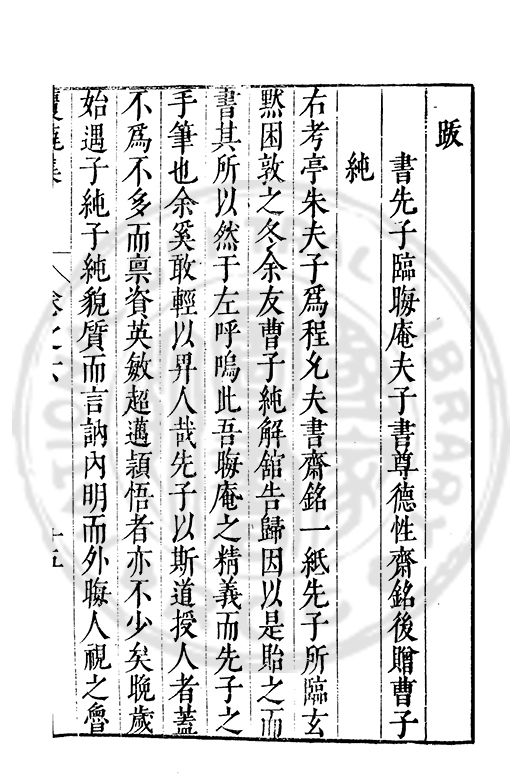 跋
書先子臨晦庵夫子書尊德性齋銘後贈曹子
純
右考亭朱夫子爲程允夫書齋銘一紙先子所臨玄
黙困敦之冬余友曹子純解舘告歸因以是貽之而
書其所以然于左呼嗚此吾晦庵之精義而先子之
手筆也余奚敢輕以畀人哉先子以斯道授人者蓋
不爲不多而禀資英敏超邁頴悟者亦不少矣晚歲
始遇子純子純貌質而言訥內明而外晦人視之魯
卷之六
十五